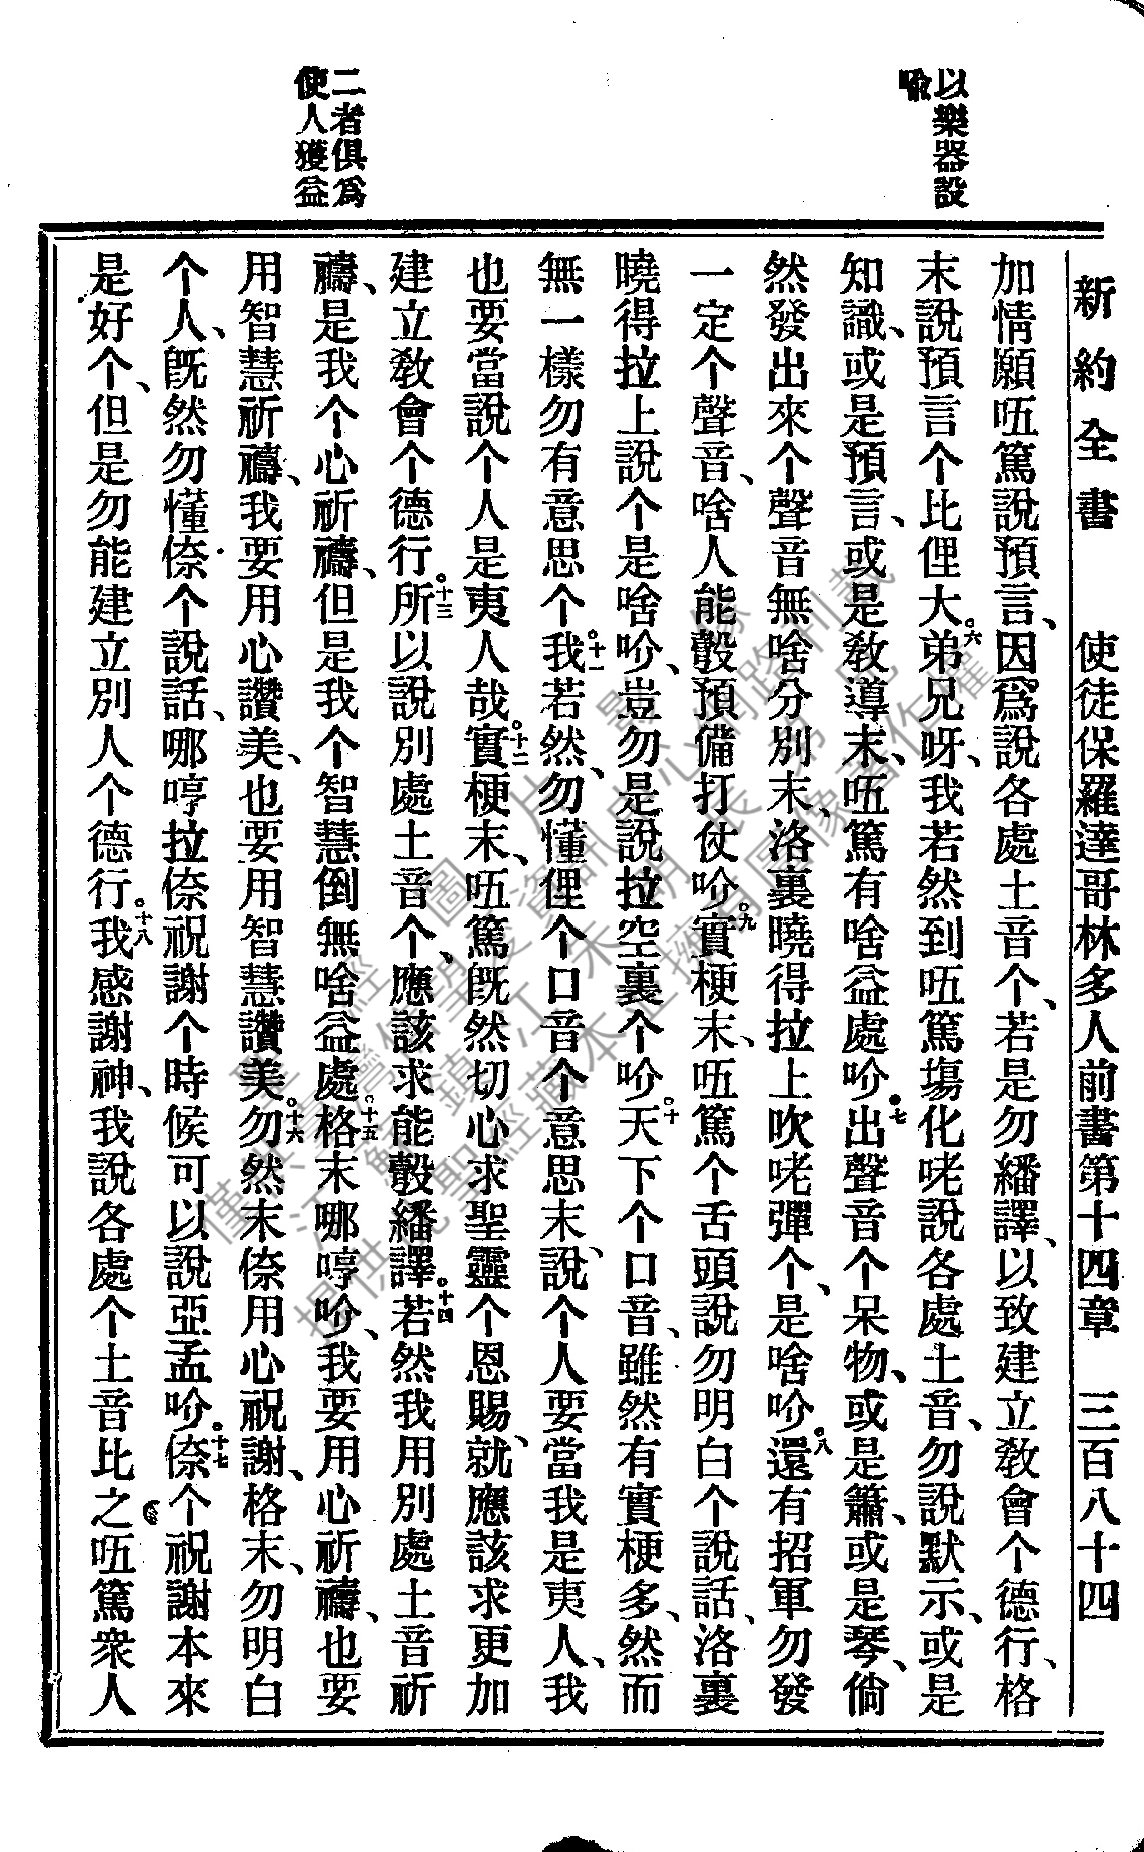 新約全書 使徒保羅達哥林多人前書第十四章 三百八十四
以樂器設
喻
二者俱爲
使人獲益
加情願㕶篤說預言、因爲說各處土音个、若是勿繙譯、以致建立敎會个德行、格
末說預言个比俚大。六弟兄呀、我若然到㕶篤塲化咾說各處土音、勿說默示、或是
知識、或是預言、或是敎導末、㕶篤有啥益處吤。七出聲音个呆物、或是簫、或是琴、倘
然發出來个聲音無啥分別末、洛裏曉得拉上吹咾彈个、是啥吤。八還有招軍勿發
一定个聲音、啥人能彀預備打仗吤。九實梗末、㕶篤个舌頭說勿明白个說話、洛裏
曉得拉上說个是啥吤、豈勿是說拉空裏个吤。十天下个口音、雖然有實梗多、然而
無一樣勿有意思个。十一我若然、勿懂俚个口音个意思末、說个人要當我是夷人、我
也要當說个人是夷人哉。十二實梗末、㕶篤旣然切心求聖靈个恩賜、就應該求更加
建立敎會个德行。十三所以說別處土音个、應該求能彀繙譯。十四若然我用別處土音祈
禱、是我个心祈禱、但是我个智慧倒無啥益處。十五格末哪哼吤、我要用心祈禱、也要
用智慧祈禱、我要用心讚美、也要用智慧讚美。十六勿然末倷用心祝謝、格末、勿明白
个人、旣然勿懂倷个說話、哪哼拉倷祝謝个時候可以說亞孟吤。十七倷个祝謝本來
是好个、但是勿能建立別人个德行。十八我感謝神、我說各處个土音比之㕶篤衆人